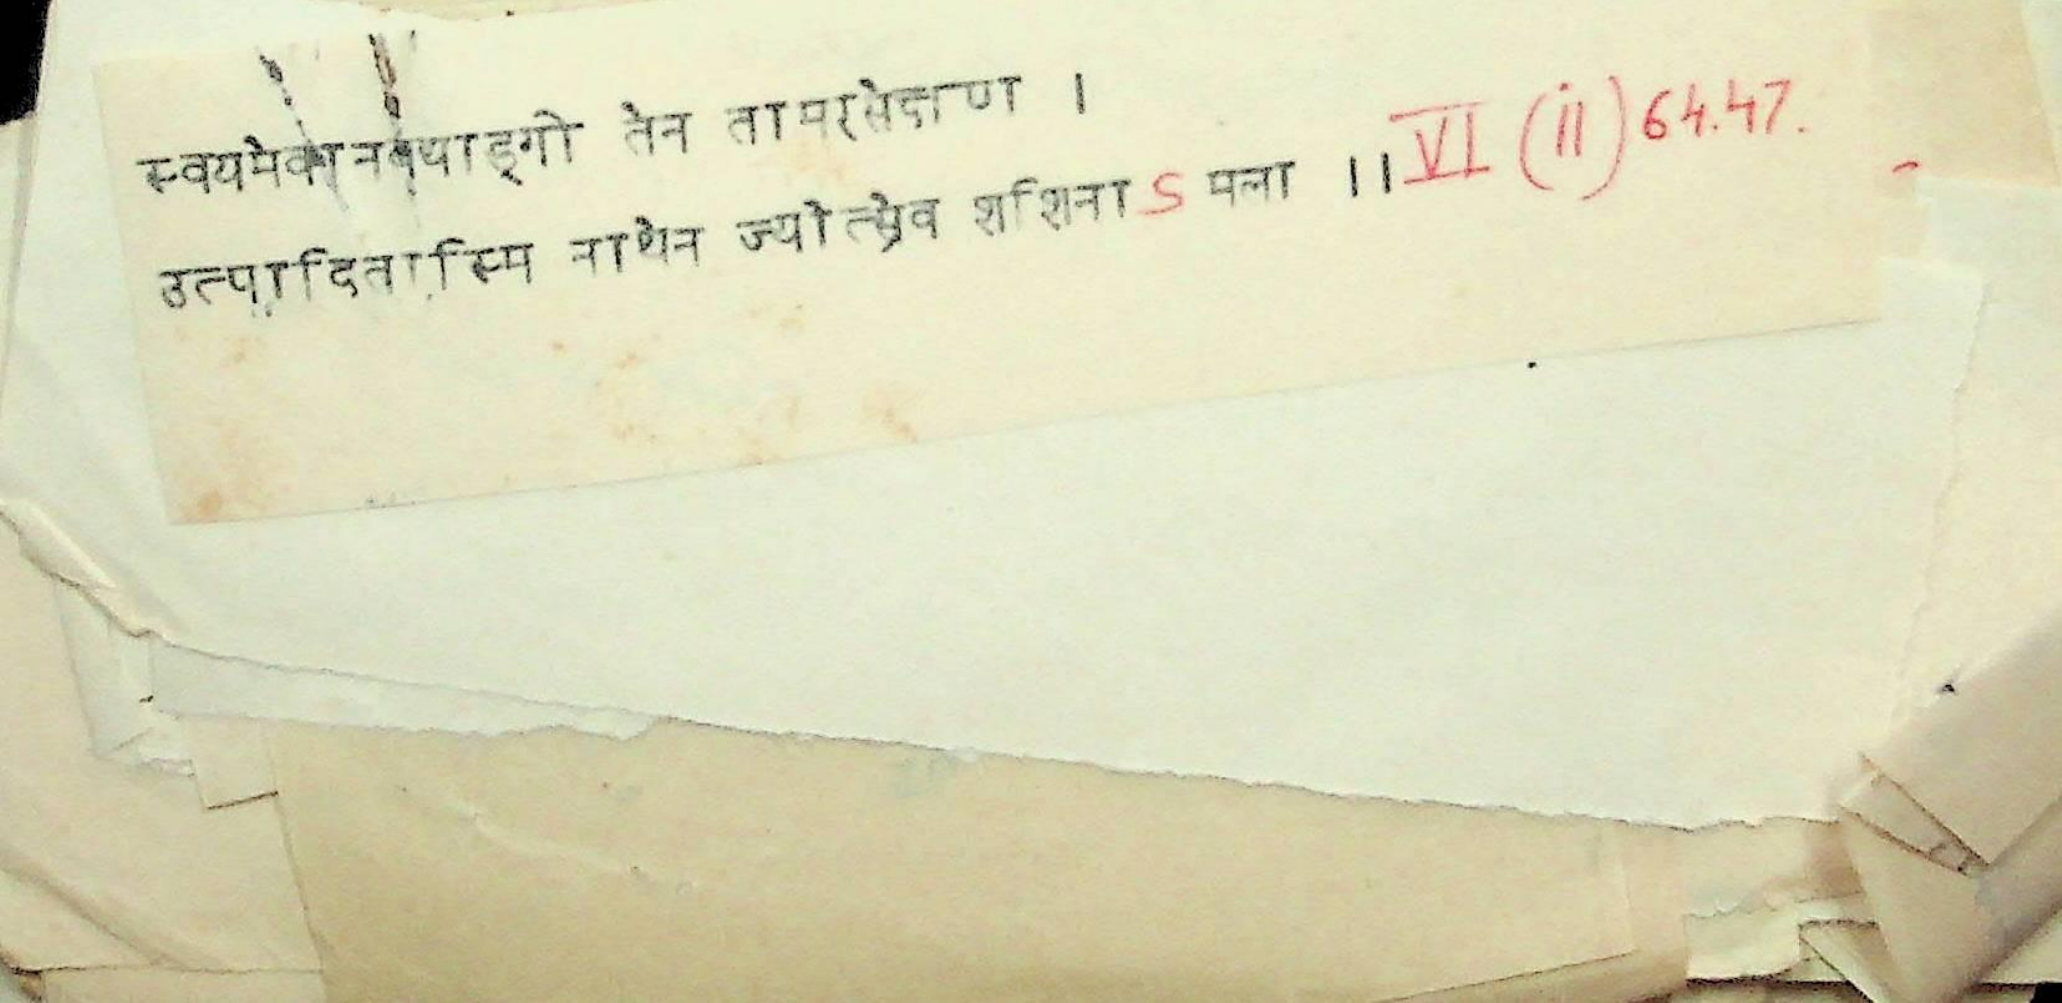 स्वयमेकानवद्याङ्गी तेन तामरसेक्षण ।
उत्पादितास्मि नाथेन ज्योत्स्नेव शशिनाऽमला ।। VI (ii) 64.47.